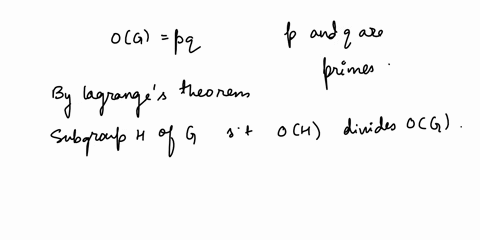 O(G) = pq
p and q are
primes.
By lagrange's theorem
Subgroup H of G s.t O(H) divides O(G).